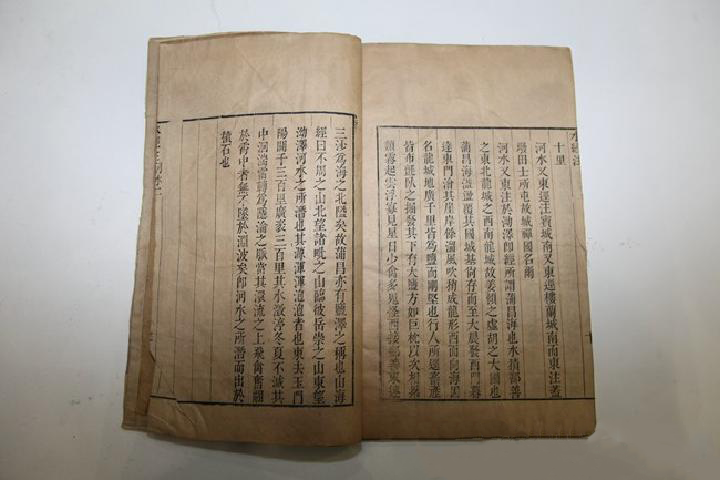 水經注
十里
河水又東逕注賓城南又東逕樓蘭城南而東注蓋
墢田士所屯故城禪國名爾
河水又東注於泑澤卽經所謂蒲昌海也水積鄯善
之東北龍城之西南龍城故姜賴之虛胡之大國也
蒲昌海溢盪覆其國城基尚存而至大晨發西門暮
達東門澮其崖岸餘溜風吹稍成龍形西面向海因
名龍城地廣千里皆爲鹽而剛堅也行人所逕畜產
皆布氊臥之掘發其下有大鹽方如巨枕以次相累
類霧起雲浮寡見星日少禽多鬼怪西接鄯善東連
三沙爲海之北隘矣故蒲昌亦有鹽澤之稱也山海
經曰不周之山北望諸毗之山臨彼岳崇之山東望
泑澤河水之所潛也其源渾渾泡泡者也東去玉門
陽關千三百里廣袤三百里其水澂渟冬夏不減其
中洄湍電轉爲隱淪之脈當其澴流之上飛禽奮翮
於霄中者無不墜於淵波矣卽河水之所潛而出於
積石也